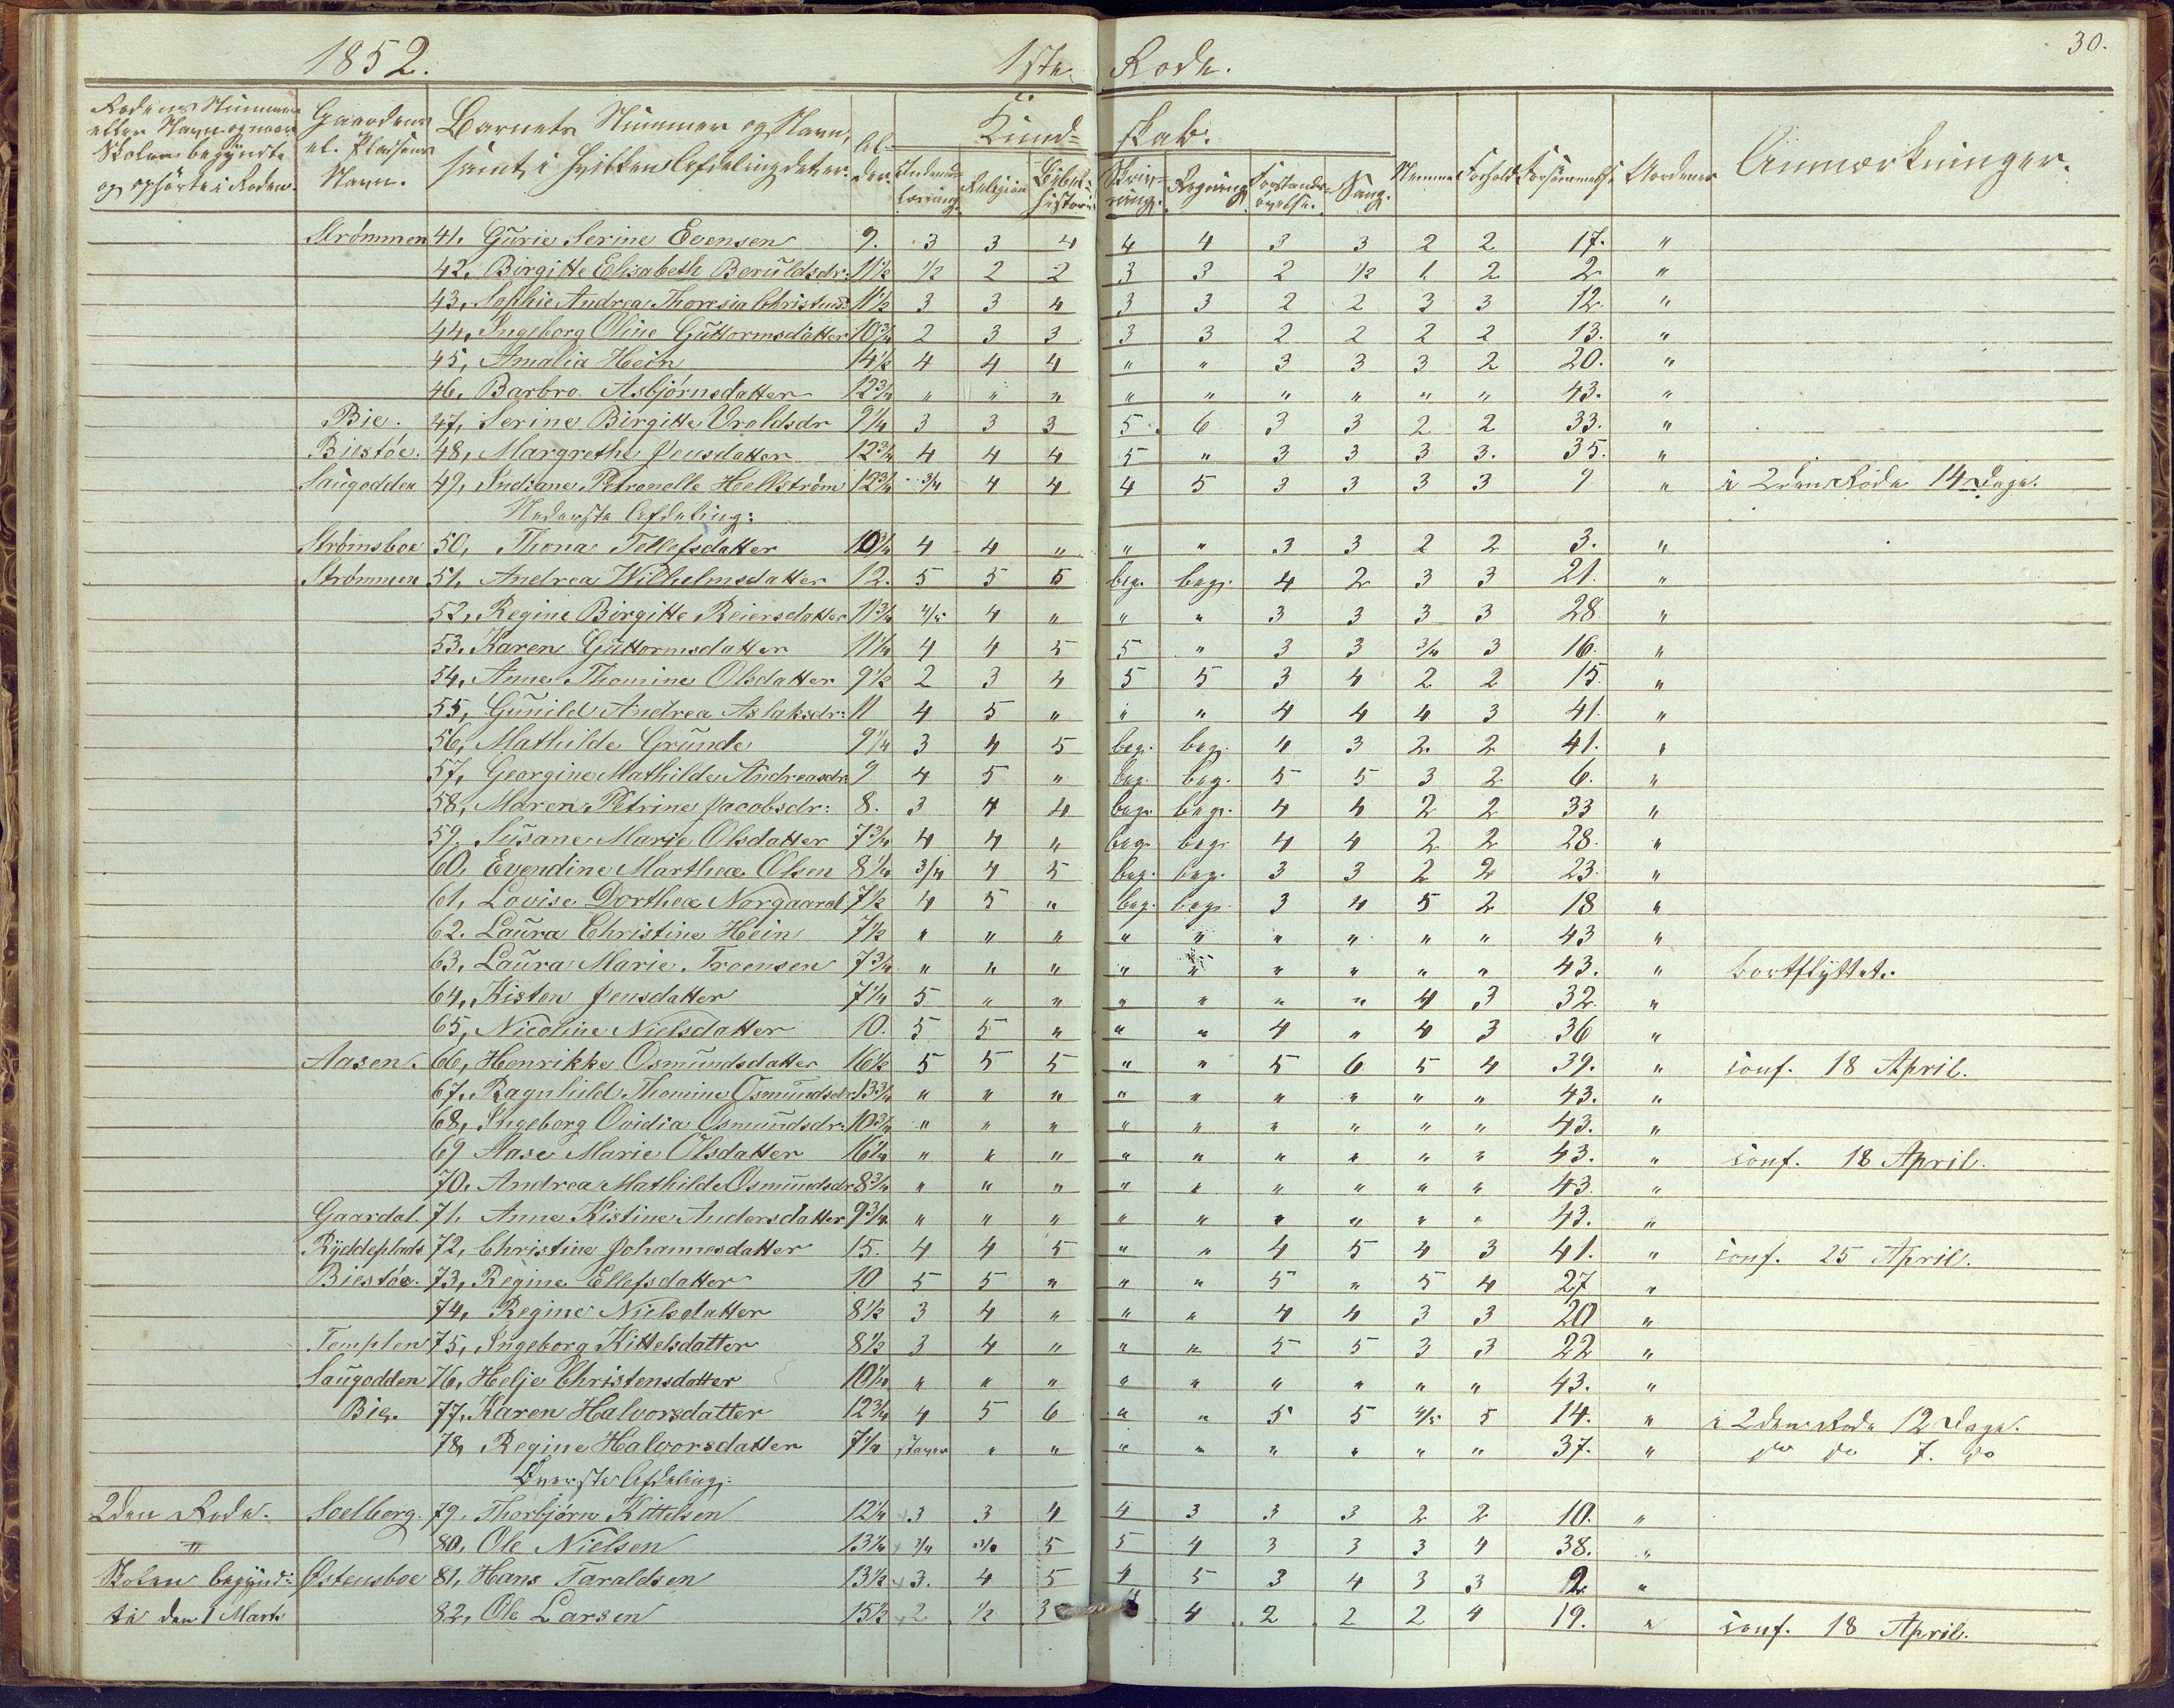 30.
1852. 1ste Rode.
Rodens Nummer eller Navn og naar Skolen begyndte og ophørte i Roden. Gaardens el. Pladsens Navn. Barnets Nummer og Navn, samt i hvilken Afdeling det er. Al-der. Kund= skab. Nemme Forhold Forsømmelse Anmærkninger.
Indenad-læsning. Religion Bibel=historie Skriv=ning. Regning Forstands=øvelse. Sang.
Strømmen 41. Gurie Serine Evensen 9. 3 3 4 4 4 3 3 2 2 17. "
42. Birgitte Elisabeth Beruldsdr: 11½ ½ 2 2 3 3 2 ½ 1 2 2 "
43. Sophie Andrea Thoresia 11½ 3 3 4 3 3 2 2 3 3 12. "
44. Ingeborg Oline Guttormsdatter 10¾ 2 3 3 3 3 2 2 2 2 13. "
45, Amalia Hein 14½ 4 4 4 " " 3 3 3 2 20. "
46. Barbro Asbjørnsdatter 12¾ " " " " " " " " " 43. "
Bie. 47, Serine Birgitte Oroldsdr 9¼ 3 3 3 5. 6 3 3 2 2 33. "
Biestøe. 48, Margrethe Jensdatter 12¾ 4 4 4 5 " 3 3 3 3. 35. "
Saugodden 49, Indiane Petronelle Hellstrøm 12¾ ¾ 4 4 4 5 3 3 3 3 9 " i 2den Rode 14 Dage.
Nederste Afdeling:
Strømsboe 50, Thona Tellefsdatter 10¾ 4 4 " " " 3 3 2 2 3. "
Strømmen 51, Andrea Wilhelmsdatter 12. 5 5 5 beg. beg. 4 2 3 3 21. "
52, Regine Birgitte Reiersdatter 11¾ 4/5 4 " " " 3 3 3 3 28 "
53. Karen Guttormsdatter 11¼ 4 4 5 5 " 3 3 ¾ 3 16. "
54, Anne Thomine Olsdatter 9½ 2 3 4 5 5 3 4 2 2 15. "
55, Gunild Andrea Aslaksdr: 11 4 5 " " " 4 4 4 3 41. "
56, Mathilde Grunde 9¼ 3 4 5 beg. beg. 4 3 2 2 41. "
57, Georgine Mathilde Andreasdr 9 4 5 " beg. beg. 5 5 3 2 6. "
58, Maren Petrine Jacobsdr: 8. 3 4 4 beg. beg. 4 4 2 2 33 "
59. Susane Marie Olsdatter 7¾ 4 4 " beg. beg. 4 4 2 2 28. "
60, Evendine Marthea Olsen 8¼ 3/4 4 5 beg. beg. 3 3 2 2 23. "
61, Lovise Dorthea Norgaard 7½ 4 5 " beg. beg. 3 4 5 2 18 "
62. Laura Christine Hein 7½ " " " " " " " " " 43 "
63, Laura Marie Troensen 7¾ " " " " " " " " " 43. " bortflyttet.
64, Kisten Jensdatter 7¼ 5 " " " " " " 4 3 32. "
65, Nicoline Nielsdatter 10. 5 5 " " " 4 " 4 3 36 "
Aasen. 66, Henrikke Osmundsdatter 16½ 5 5 5 " " 5 6 5 4 39. " conf. 18 April.
67. Ragnhild Thomine Osmundsdr. 13¾ " " " " " " " " " 43. "
68, Ingeborg Ovidia Osmundsdr: 10¾ " " " " " " " " " 43. "
69 Aase Marie Olsdatter 16¼ " " " " " " " " " 43. " conf. 18 April.
70. Andrea Mathilde Osmundsdr 8¾ " " " " " " " " " 43. "
Gaardal. 71. Anne Kistine Andersdatter 9¾ " " " " " " " " " 43. "
Ryddeplads 72, Christine Johannesdatter 15. 4 4 5 " " 4 5 4 3 41. " conf. 25 April.
Biestøe. 73, Regine Ellefsdatter 10 5 5 " " " 5 " 5 4 27 "
74, Regine Nielsdatter 8½ 3 4 " " " 4 4 3 3 20 "
Templen 75, Ingeborg Kittelsdatter 8½ 3 4 " " " 5 5 3 3 22 "
Saugodden 76, Helje Christensdatter 10¼ " " " " " " " " " 43. "
Bie. 77, Karen Halvorsdatter 12¾ 4 5 6 " " 5 5 4/5 5 14. " i 2den Rode 12 Dage.
78, Regine Halvorsdatter 7¼ staver " " " " " " " " 37. " do do 7. do
Øverste Afdeling:
2den Rode. Soelberg. 79. Thorbjørn Kittelsen 12¼ 3 3 4 4 3 3 3 2 2 10. "
" 80, Ole Nielsen 13¼ ¾ ¾ 5 5 4 3 3 3 4 38. "
Skolen begynd= Østensboe 81, Hans Taraldsen 13½ 3. 4 5 4 5 3 4 3 3 2 "
te den 1 Marts 82, Ole Larsen 15½ 2 ½ 3 4 4 2 2 2 4 19. " conf. 18 April.